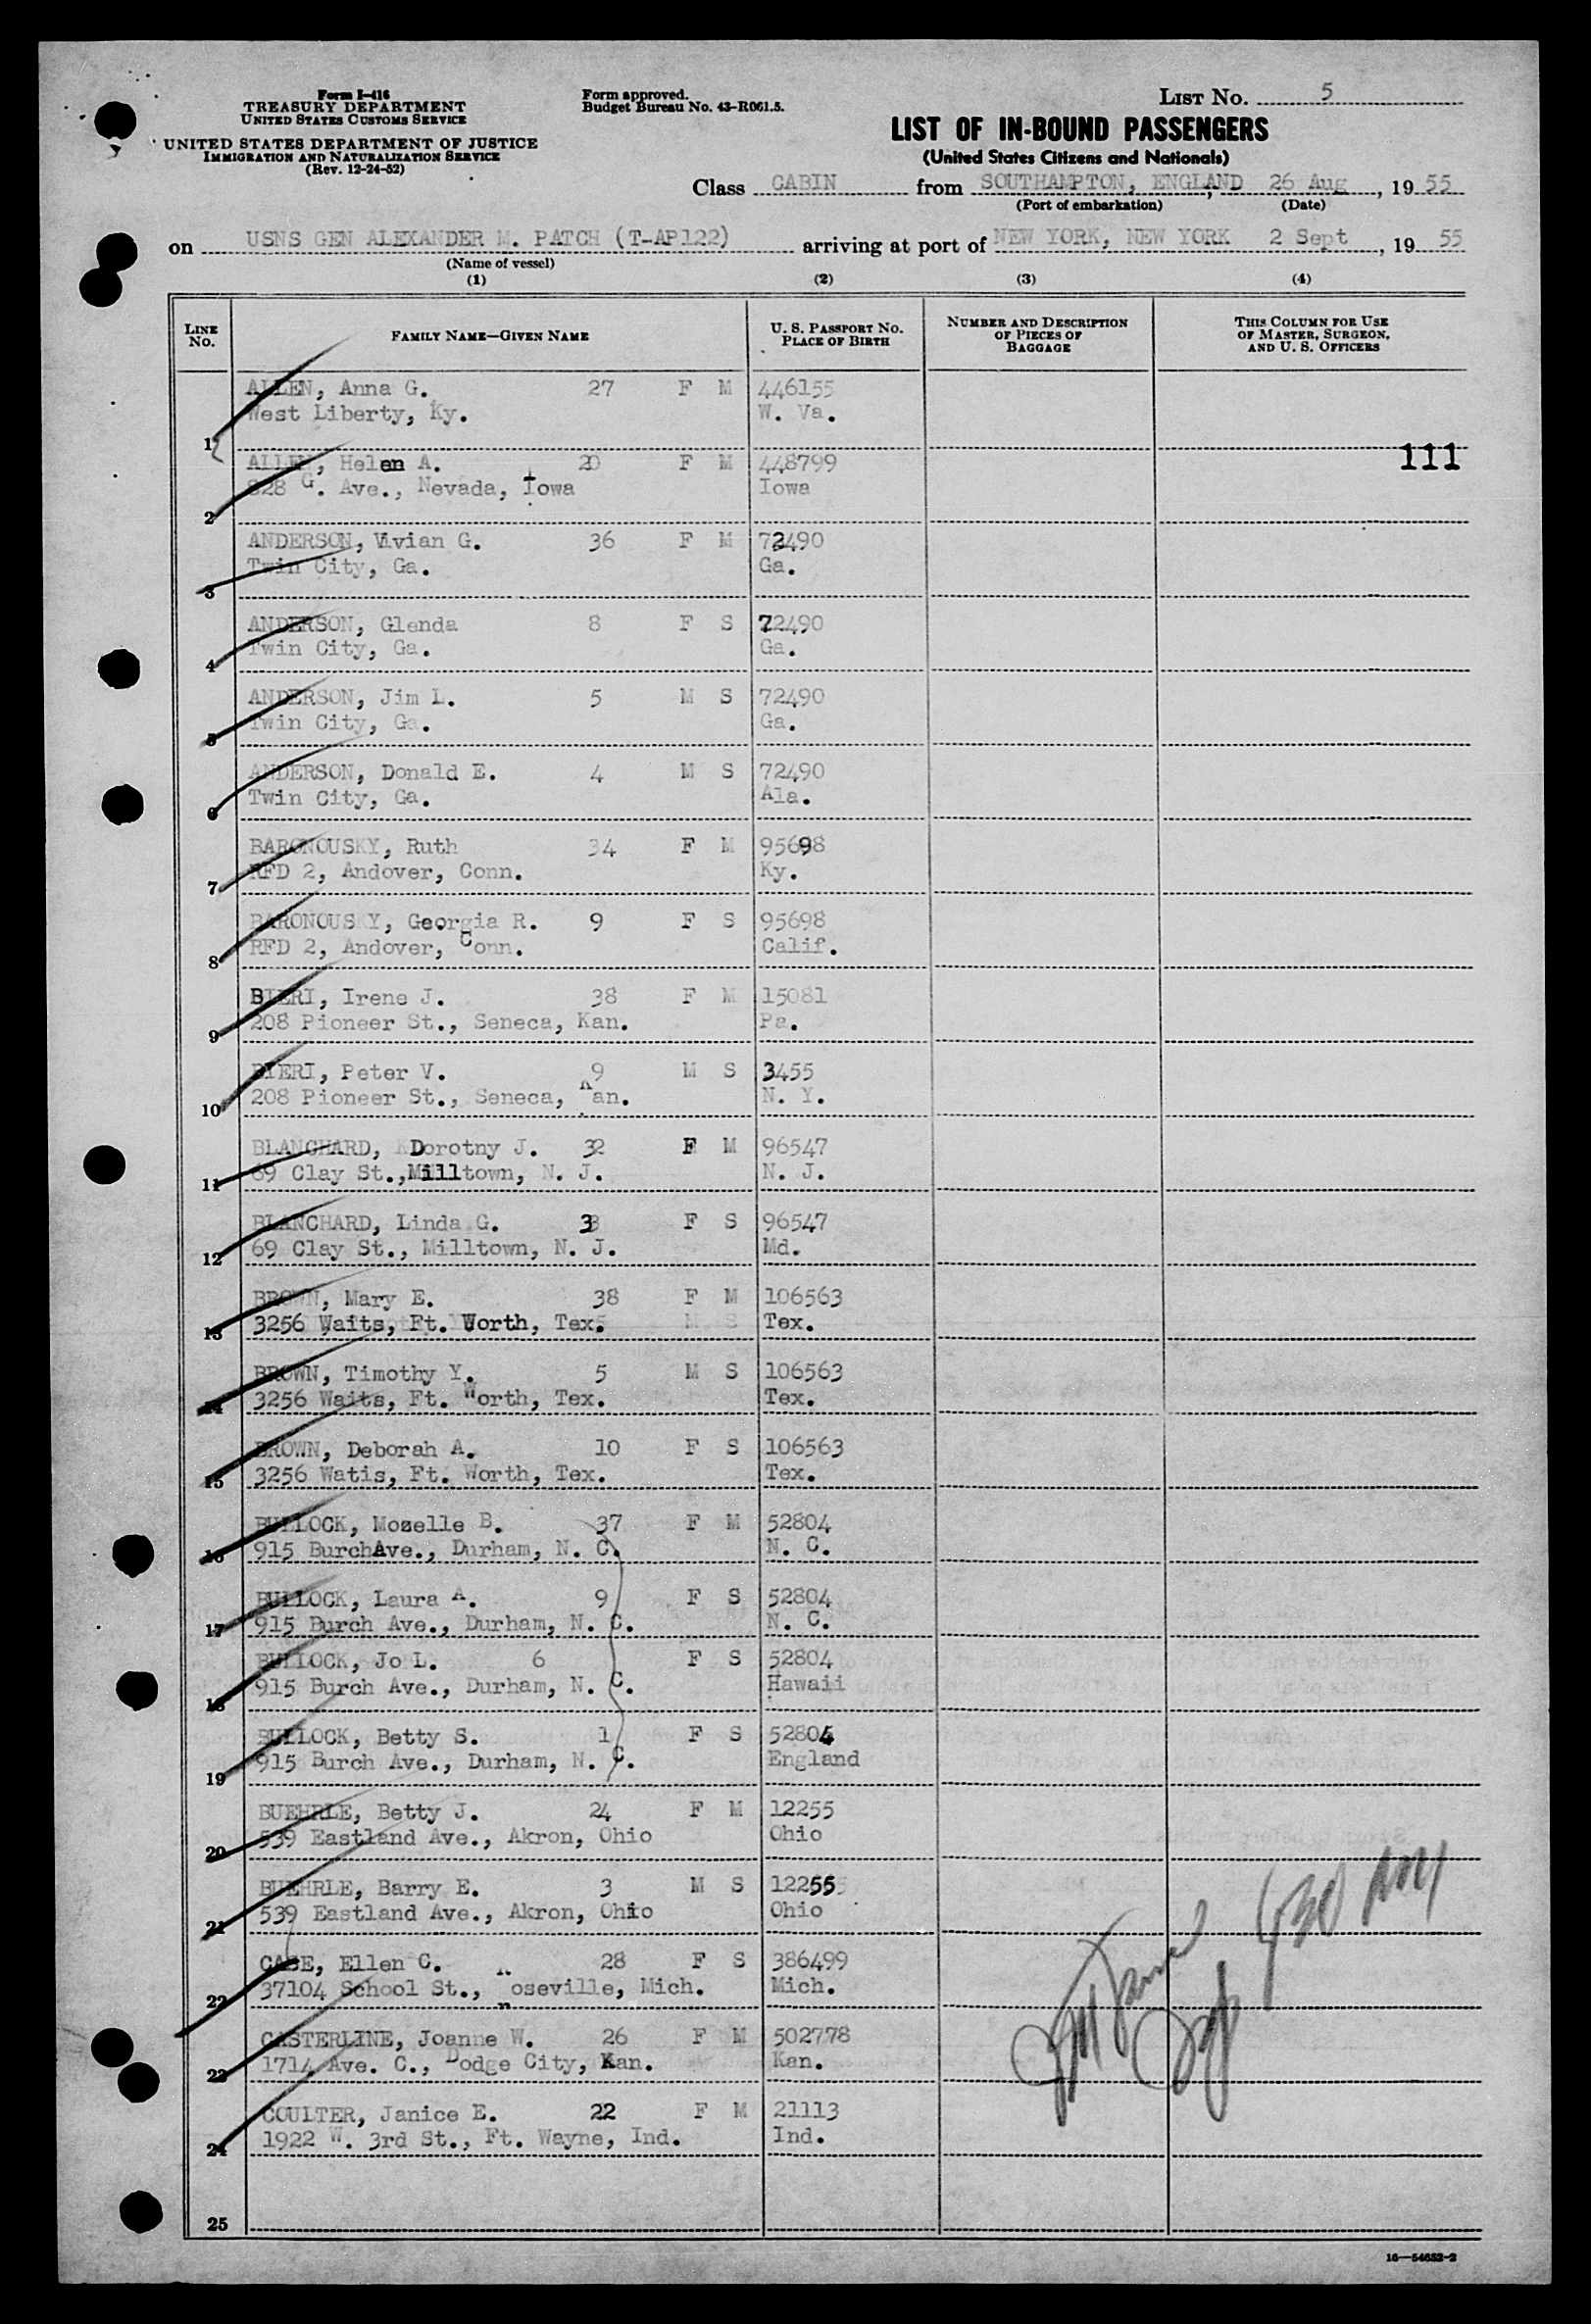 Form I-416
TREASURY DEPARTMENT
UNITED STATES CUSTOMS SERVICE
UNITED STATES DEPARTMENT OF JUSTICE
IMMIGRATION AND NATURALIZATION SERVICE
(Rev. 12-24-52)
Form approved.
Budget Bureau No. 43-R061.5.
LIST No. 5
LIST OF IN-BOUND PASSENGERS
(United States Citizens and Nationals)
Class CABIN from SOUTHAMPTON, ENGLAND, 26 Aug, 19 55
(Port of embarkation) (Date)
on USNS GEN ALEXANDER M. PATCH (T-AP122) arriving at port of NEW YORK, NEW YORK 2 Sept, 19 55
(Name of vessel)
(1) (2) (3) (4)
LINE No. FAMILY NAME—GIVEN NAME U. S. PASSPORT No. PLACE OF BIRTH NUMBER AND DESCRIPTION OF PIECES OF BAGGAGE THIS COLUMN FOR USE OF MASTER, SURGEON, AND U. S. OFFICERS
ALLEN, Anna G. 27 F M 446155
West Liberty, Ky. W. Va.
1
ALLEN, Helen A. 20 F M 448799 111
828 G. Ave., Nevada, Iowa Iowa
2
ANDERSON, Vivian G. 36 F M 72490
Twin City, Ga. Ga.
3
ANDERSON, Glenda 8 F S 72490
Twin City, Ga. Ga.
4
ANDERSON, Jim L. 5 M S 72490
Twin City, Ga. Ga.
5
ANDERSON, Donald E. 4 M S 72490
Twin City, Ga. Ala.
6
BARONOUSKY, Ruth 34 F M 95698
RFD 2, Andover, Conn. Ky.
7
BARONOUSKY, Georgia R. 9 F S 95698
RFD 2, Andover, Conn. Calif.
8
BIERI, Irene J. 38 F M 15081
208 Pioneer St., Seneca, Kan. Pa.
9
BIERI, Peter V. 9 M S 3455
208 Pioneer St., Seneca, Kan. N. Y.
10
BLANCHARD, Dorotny J. 32 F M 96547
69 Clay St.,Milltown, N. J. N. J.
11
BLANCHARD, Linda G. 3 F S 96547
69 Clay St., Milltown, N. J. Md.
12
BROWN, Mary E. 38 F M 106563
3256 Waits, Ft. Worth, Tex. Tex.
13
BROWN, Timothy Y. 5 M S 106563
3256 Waits, Ft. Worth, Tex. Tex.
14
BROWN, Deborah A. 10 F S 106563
3256 Watis, Ft. Worth, Tex. Tex.
15
BULLOCK, Mozelle B. 37 F M 52804
915 BurchAve., Durham, N. C. N. C.
16
BULLOCK, Laura A. 9 F S 52804
915 Burch Ave., Durham, N. C. N. C.
17
BULLOCK, Jo L. 6 F S 52804
915 Burch Ave., Durham, N. C. Hawaii
18
BULLOCK, Betty S. 1 F S 52804
915 Burch Ave., Durham, N. C. England
19
BUEHRLE, Betty J. 24 F M 12255
539 Eastland Ave., Akron, Ohio Ohio
20
BUEHRLE, Barry E. 3 M S 12255
539 Eastland Ave., Akron, Ohio Ohio
21
CASE, Ellen C. 28 F S 386499
37104 School St., Roseville, Mich. Mich.
22
CASTERLINE, Joanne W. 26 F M 502778
1714 Ave. C., Dodge City, Kan. Kan.
23
COULTER, Janice E. 22 F M 21113
1922 W. 3rd St., Ft. Wayne, Ind. Ind.
24
25
16—54652-2